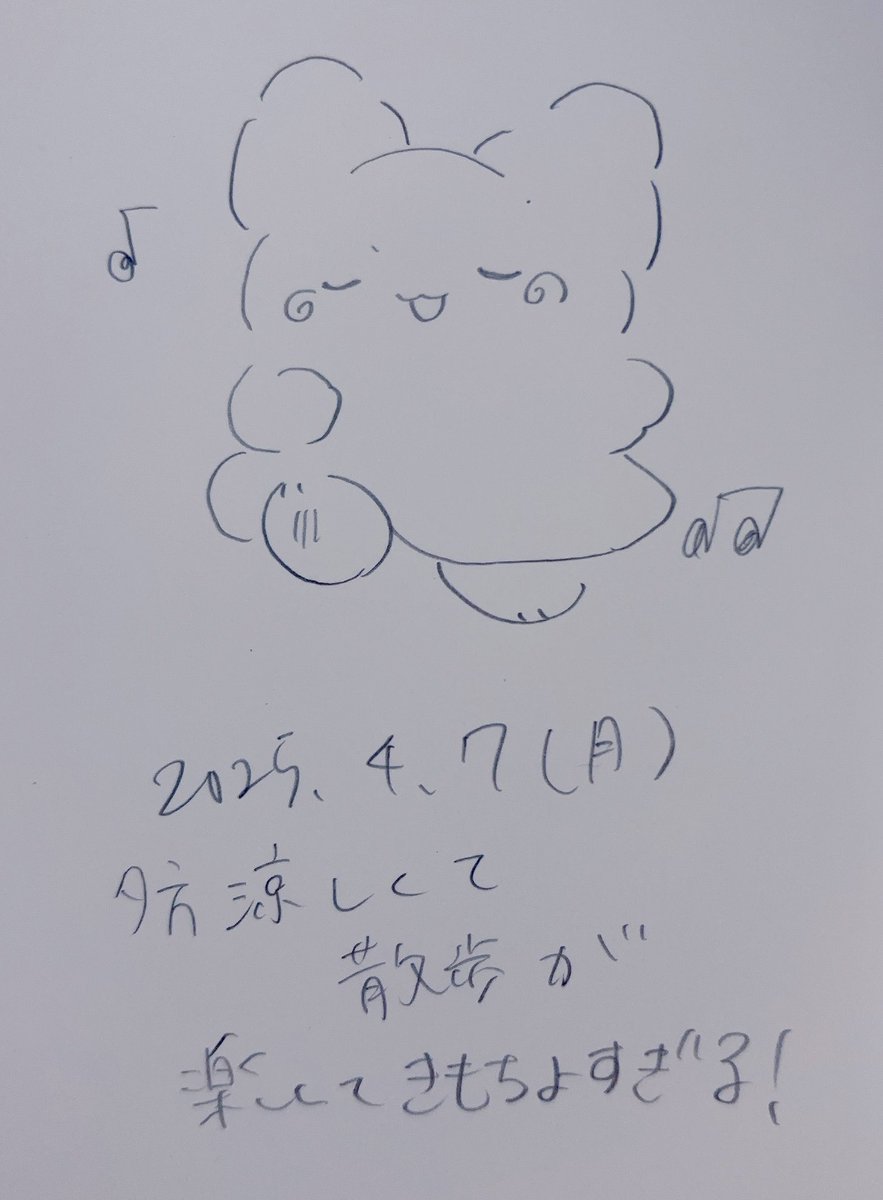 2025.4.7(月)
夕方涼しくて
散歩が
楽しくてきもちよすぎる!